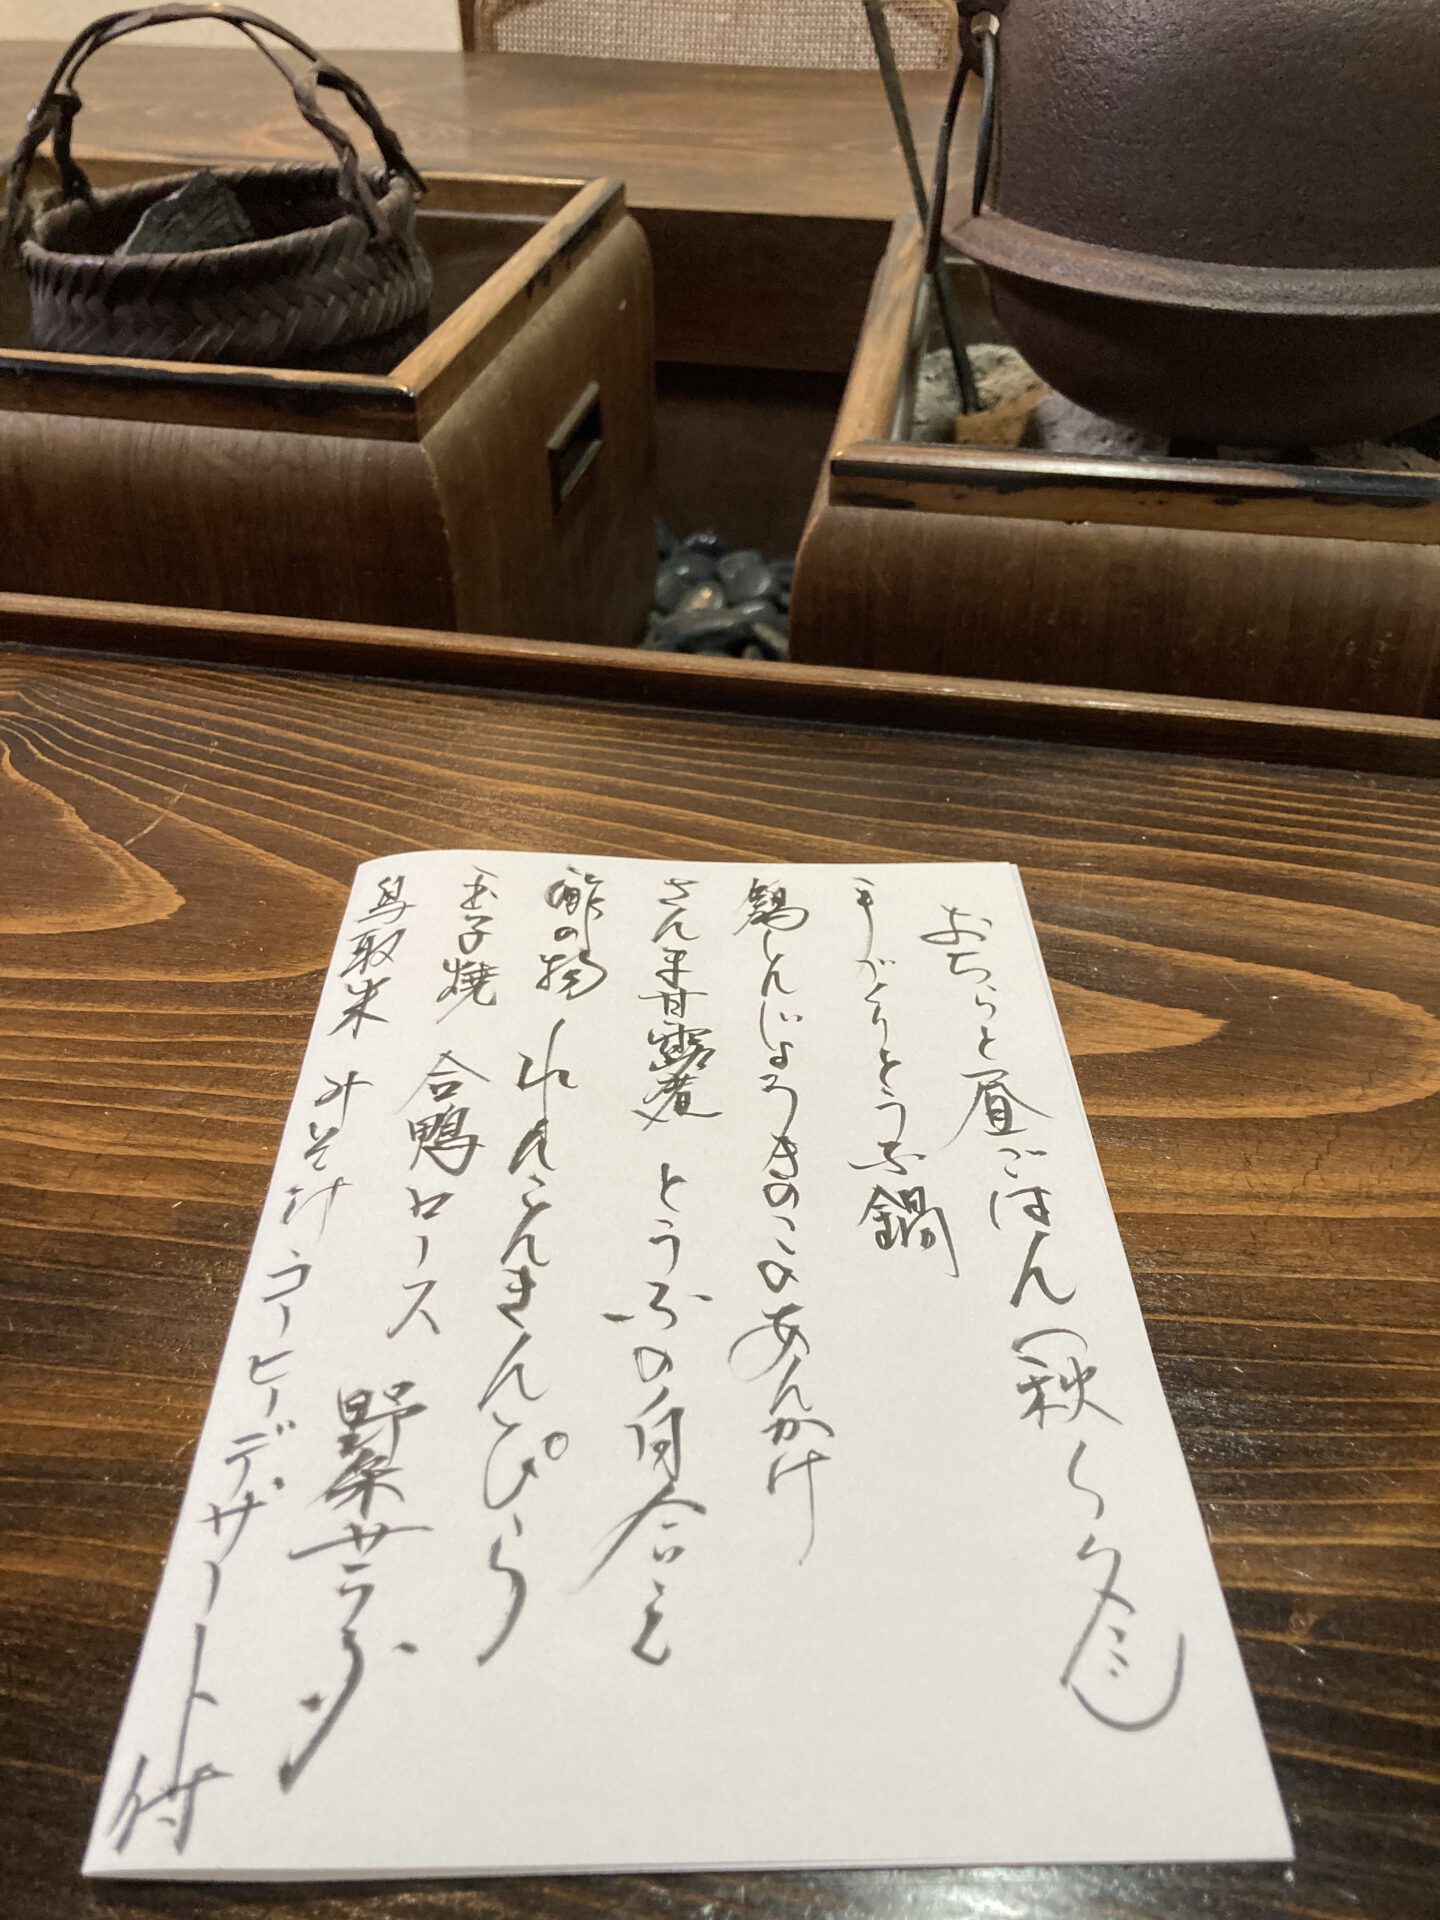 おちらと昼ごはん(秋〜冬)
手づくりとうふ鍋
鶏しんじょうきのこのあんかけ
さんま甘露煮 とうふの白合え
酢の物 れんこんきんぴら
玉子焼 合鴨ロース 野菜サラダ
鳥取米 みそ汁 コーヒーデザート付